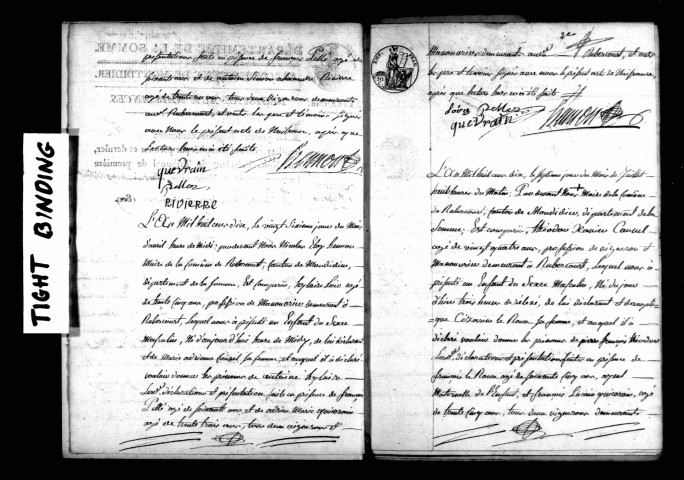 TIGHT BINDING
présentation faite en présence de françois
ans et de antoine
agé de trente un ans, tous deux vignerons demeurants
audt Rubescourt, et ont les pere et temoins signé
avec Nous le présent acte de Naissance, après que
Lecture leur en a été faite
quevrain
pellez
RIVIERRE
L'An Mil huit cent dix, le vingt sixieme jour du Mois
d'avril heure de Midi; pardevant Nous Nicolas Eloy
Maire de la Commune de Rubescourt, Canton de Mondidier,
département de la Somme, Est comparu, hylaire Loir agé
de trente cinq ans, profession de Manouvrier demeurant à
Rubescourt, Lequel nous a présenté un Enfant du Sexe
Masculin, Né d'aujourd'hui heure de Midy, de lui déclarant
et de Marie adrienne sa femme, et auquel il a déclaré
vouloir donner les prenoms de hylaire
Lesdes déclaration et présentation faite en présence de francois
agé de soixante ans, et de adrien Marie quevrain
agé de trente trois ans, tous deux vignerons et
2e
Manouvriers demeurants audt Rubescourt, et ont
les pere et temoins signé avec nous le présent acte de Naissance,
après que lecture leur en a été faite
Loire pellez
quevrain
L'An Mil huit cent dix, le septieme jour du Mois de Juillet
huit heures du Matin, Pardevant Nous Maire de la Commune
de Rubescourt, Canton de Mondidier, département de la
Somme, Est comparu, théodore Xavier
agé de vingt quatre ans, profession de vigneron et
Manouvrier demeurant à Rubescourt, Lequel nous a
présenté un Enfant du Sexe Masculin, Né du jour
d'hier trois heures de relevé, de lui déclarant et de
Césarine le Roux sa femme, et auquel il a
déclaré vouloir donner les prenoms de pierre françois théodore
Lesdes déclaration et présentation faite en présence de
francois le Roux agé de soixante cinq ans, ayeul
Maternelle de l'Enfant, et francois Lucien quevrain, agé
de trente cinq ans, tous deux vignerons demeurants